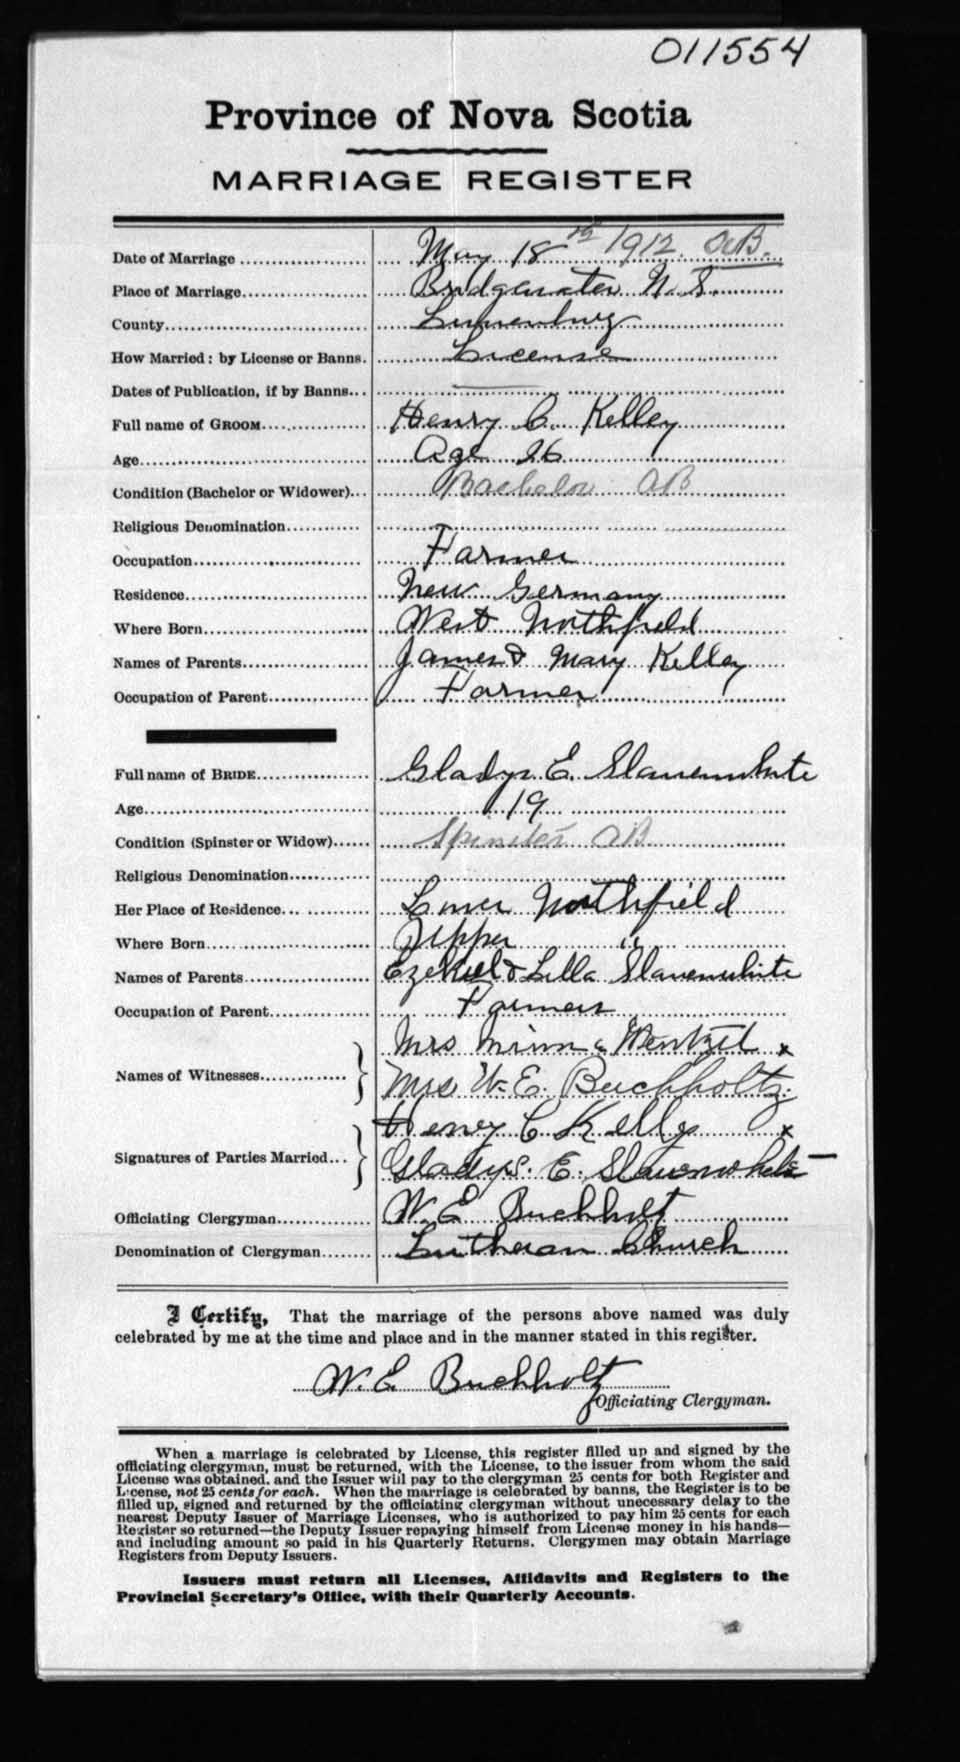 011554
Province of Nova Scotia
MARRIAGE REGISTER
Date of Marriage May 18th 1912. AB.
Place of Marriage Bridgewater N. S.
County Lunenburg
How Married: by License or Banns. License
Dates of Publication, if by Banns
Full name of GROOM Henry C. Kelley
Age Age 26
Condition (Bachelor or Widower) Bachelor AB
Religious Denomination
Occupation Farmer
Residence New Germany
Where Born West Northfield
Names of Parents James & Mary Kelley
Occupation of Parent Farmer
Full name of BRIDE Gladys E. Slauenwhite
Age 19
Condition (Spinster or Widow) Spinster AB
Religious Denomination
Her Place of Residence Lower Northfield
Where Born Upper "
Names of Parents Ezekiel & Lella Slauenwhite
Occupation of Parent Farmer
Names of Witnesses Mrs Wentzel x
Mrs W. E. Buchholtz.
Signatures of Parties Married Henry C Kelly x
Gladys. E. Slauenwhite
Officiating Clergyman W. E. Buchholtz
Denomination of Clergyman Lutheran Church
I Certify, That the marriage of the persons above named was duly
celebrated by me at the time and place and in the manner stated in this register.
W. E. Buchholtz
Officiating Clergyman.
When a marriage is celebrated by License, this register filled up and signed by the
officiating clergyman, must be returned, with the License, to the issuer from whom the said
License was obtained, and the Issuer will pay to the clergyman 25 cents for both Register and
License, not 25 cents for each. When the marriage is celebrated by banns, the Register is to be
filled up, signed and returned by the officiating clergyman without unnecessary delay to the
nearest Deputy Issuer of Marriage Licenses, who is authorized to pay him 25 cents for each
Register so returned—the Deputy Issuer repaying himself from License money in his hands—
and including amount so paid in his Quarterly Returns. Clergymen may obtain Marriage
Registers from Deputy Issuers.
Issuers must return all Licenses, Affidavits and Registers to the
Provincial Secretary's Office, with their Quarterly Accounts.